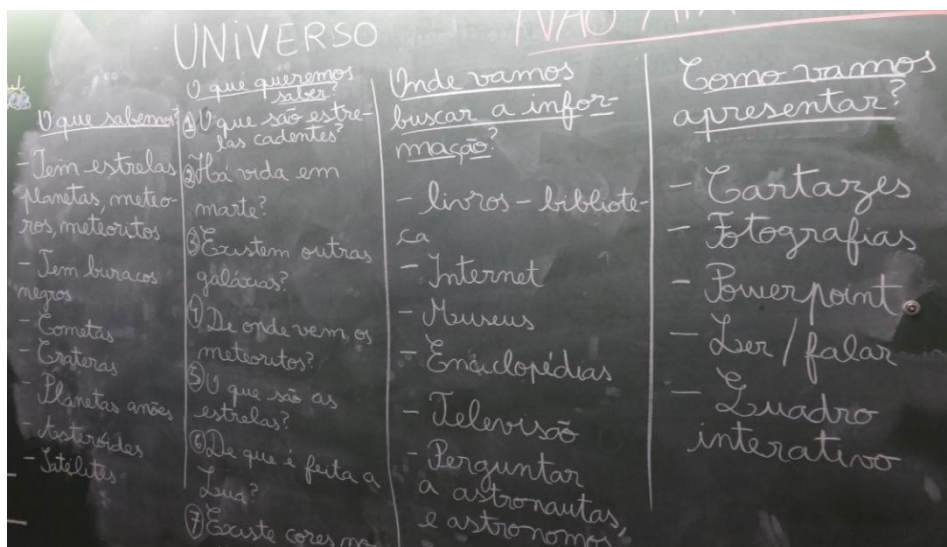 UNIVERSO
NÃO
O que sabemos?
- Tem estrelas
planetas, meteo-
ros, meteoritos
- Tem buracos
negros
- Cometas
- Crateras
- Planetas anões
- Asteróides
- Satélites
O que queremos
saber?
① O que são estre-
las cadentes?
② Há vida em
marte?
③ Existem outras
galáxias?
④ De onde vem os
meteoritos?
⑤ O que são as
estrelas?
⑥ De que é feita a
Lua?
⑦ Existe cores no
Onde vamos
buscar a infor-
mação?
- livros - bibliote-
ca
- Internet
- Museus
- Enciclopédias
- Televisão
- Perguntar
a astronautas,
e astronomos
Como vamos
apresentar?
- Cartazes
- Fotografias
- Powerpoint
- Ler / falar
- Quadro
interativo